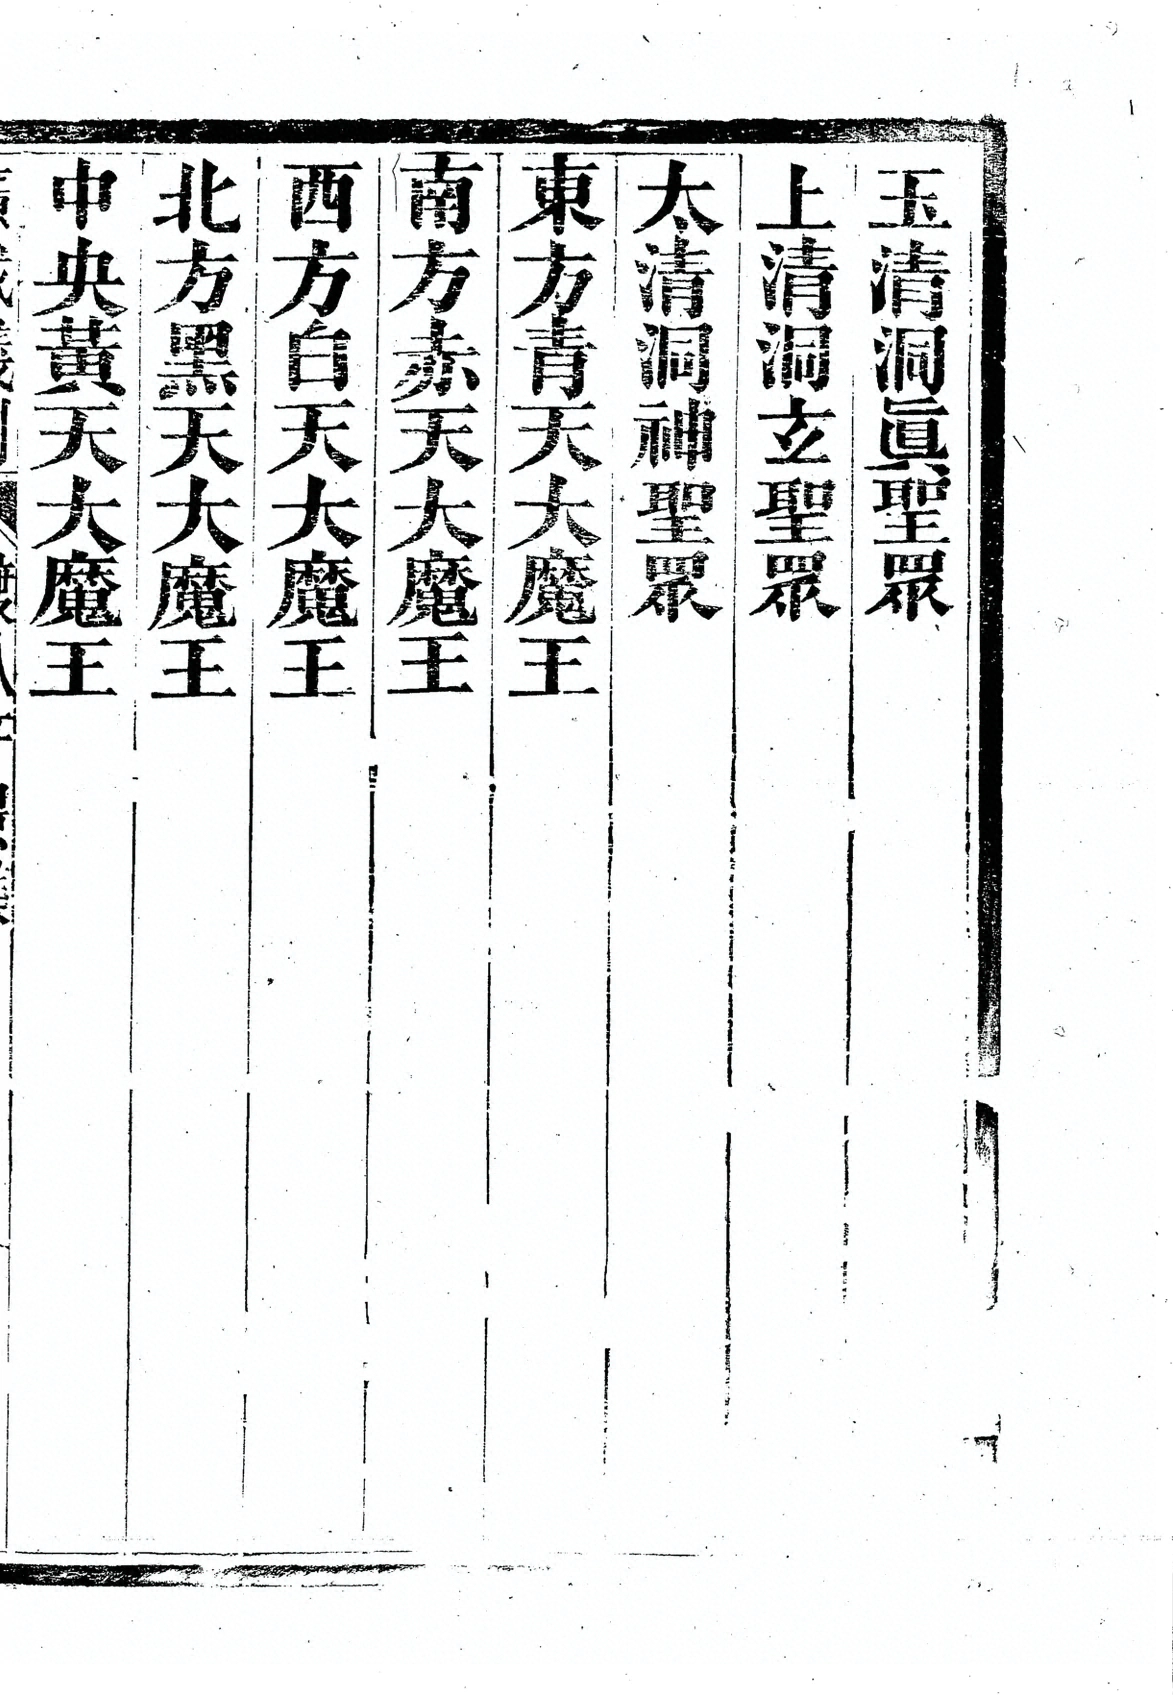 玉清洞眞聖眾
上清洞玄聖眾
太清洞神聖眾
東方青天大魔王
南方赤天大魔王
西方白天大魔王
北方黑天大魔王
中央黃天大魔王